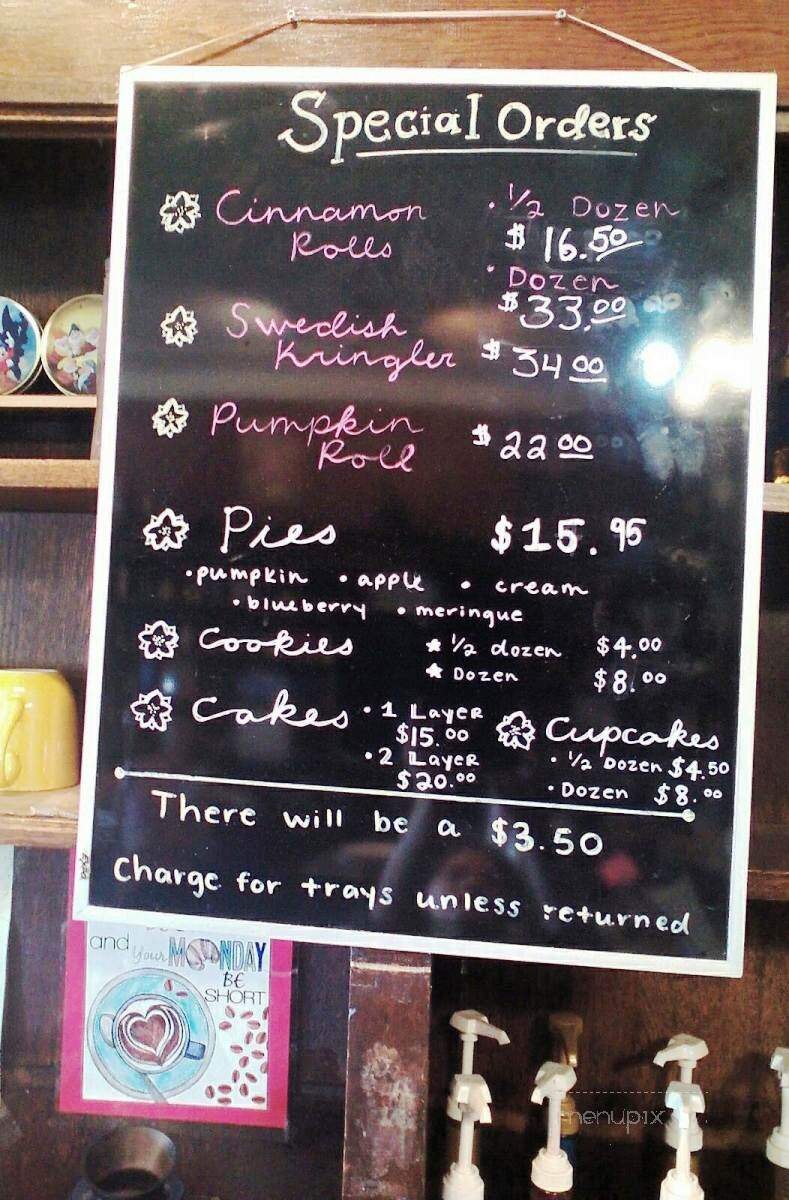 Special Orders
Cinnamon Rolls
• 1/2 Dozen
$16.50
• Dozen
$33.00
Swedish Kringler $34.00
Pumpkin Roll $22.00
Pies $15.95
• pumpkin • apple • cream
• blueberry • meringue
Cookies ★ 1/2 dozen $4.00
★ Dozen $8.00
Cakes • 1 Layer
$15.00
• 2 Layer
$20.00
Cupcakes
• 1/2 Dozen $4.50
• Dozen $8.00
There will be a $3.50
Charge for trays unless returned
and your MONDAY
BE
SHORT
menupix